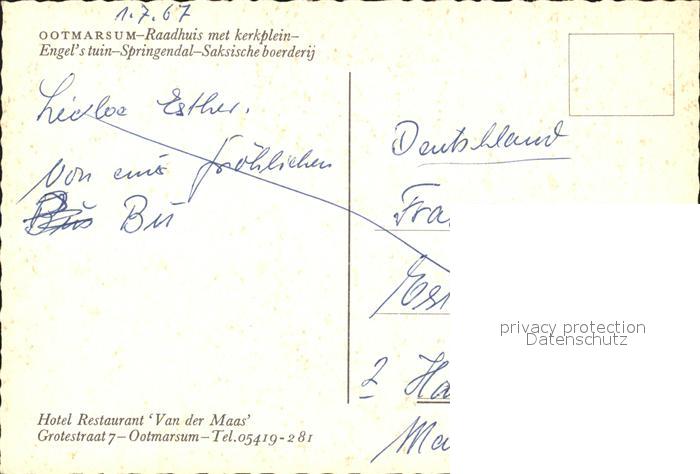 1.7.67
OOTMARSUM–Raadhuis met kerkplein–
Engel's tuin–Springendal–Saksische boerderij
Esther.
Von fröhlichen
Bus
Deutschland
Fra
2 Ha
Ma
privacy protection
Datenschutz
Hotel Restaurant 'Van der Maas'
Grotestraat 7–Ootmarsum–Tel. 05419-281